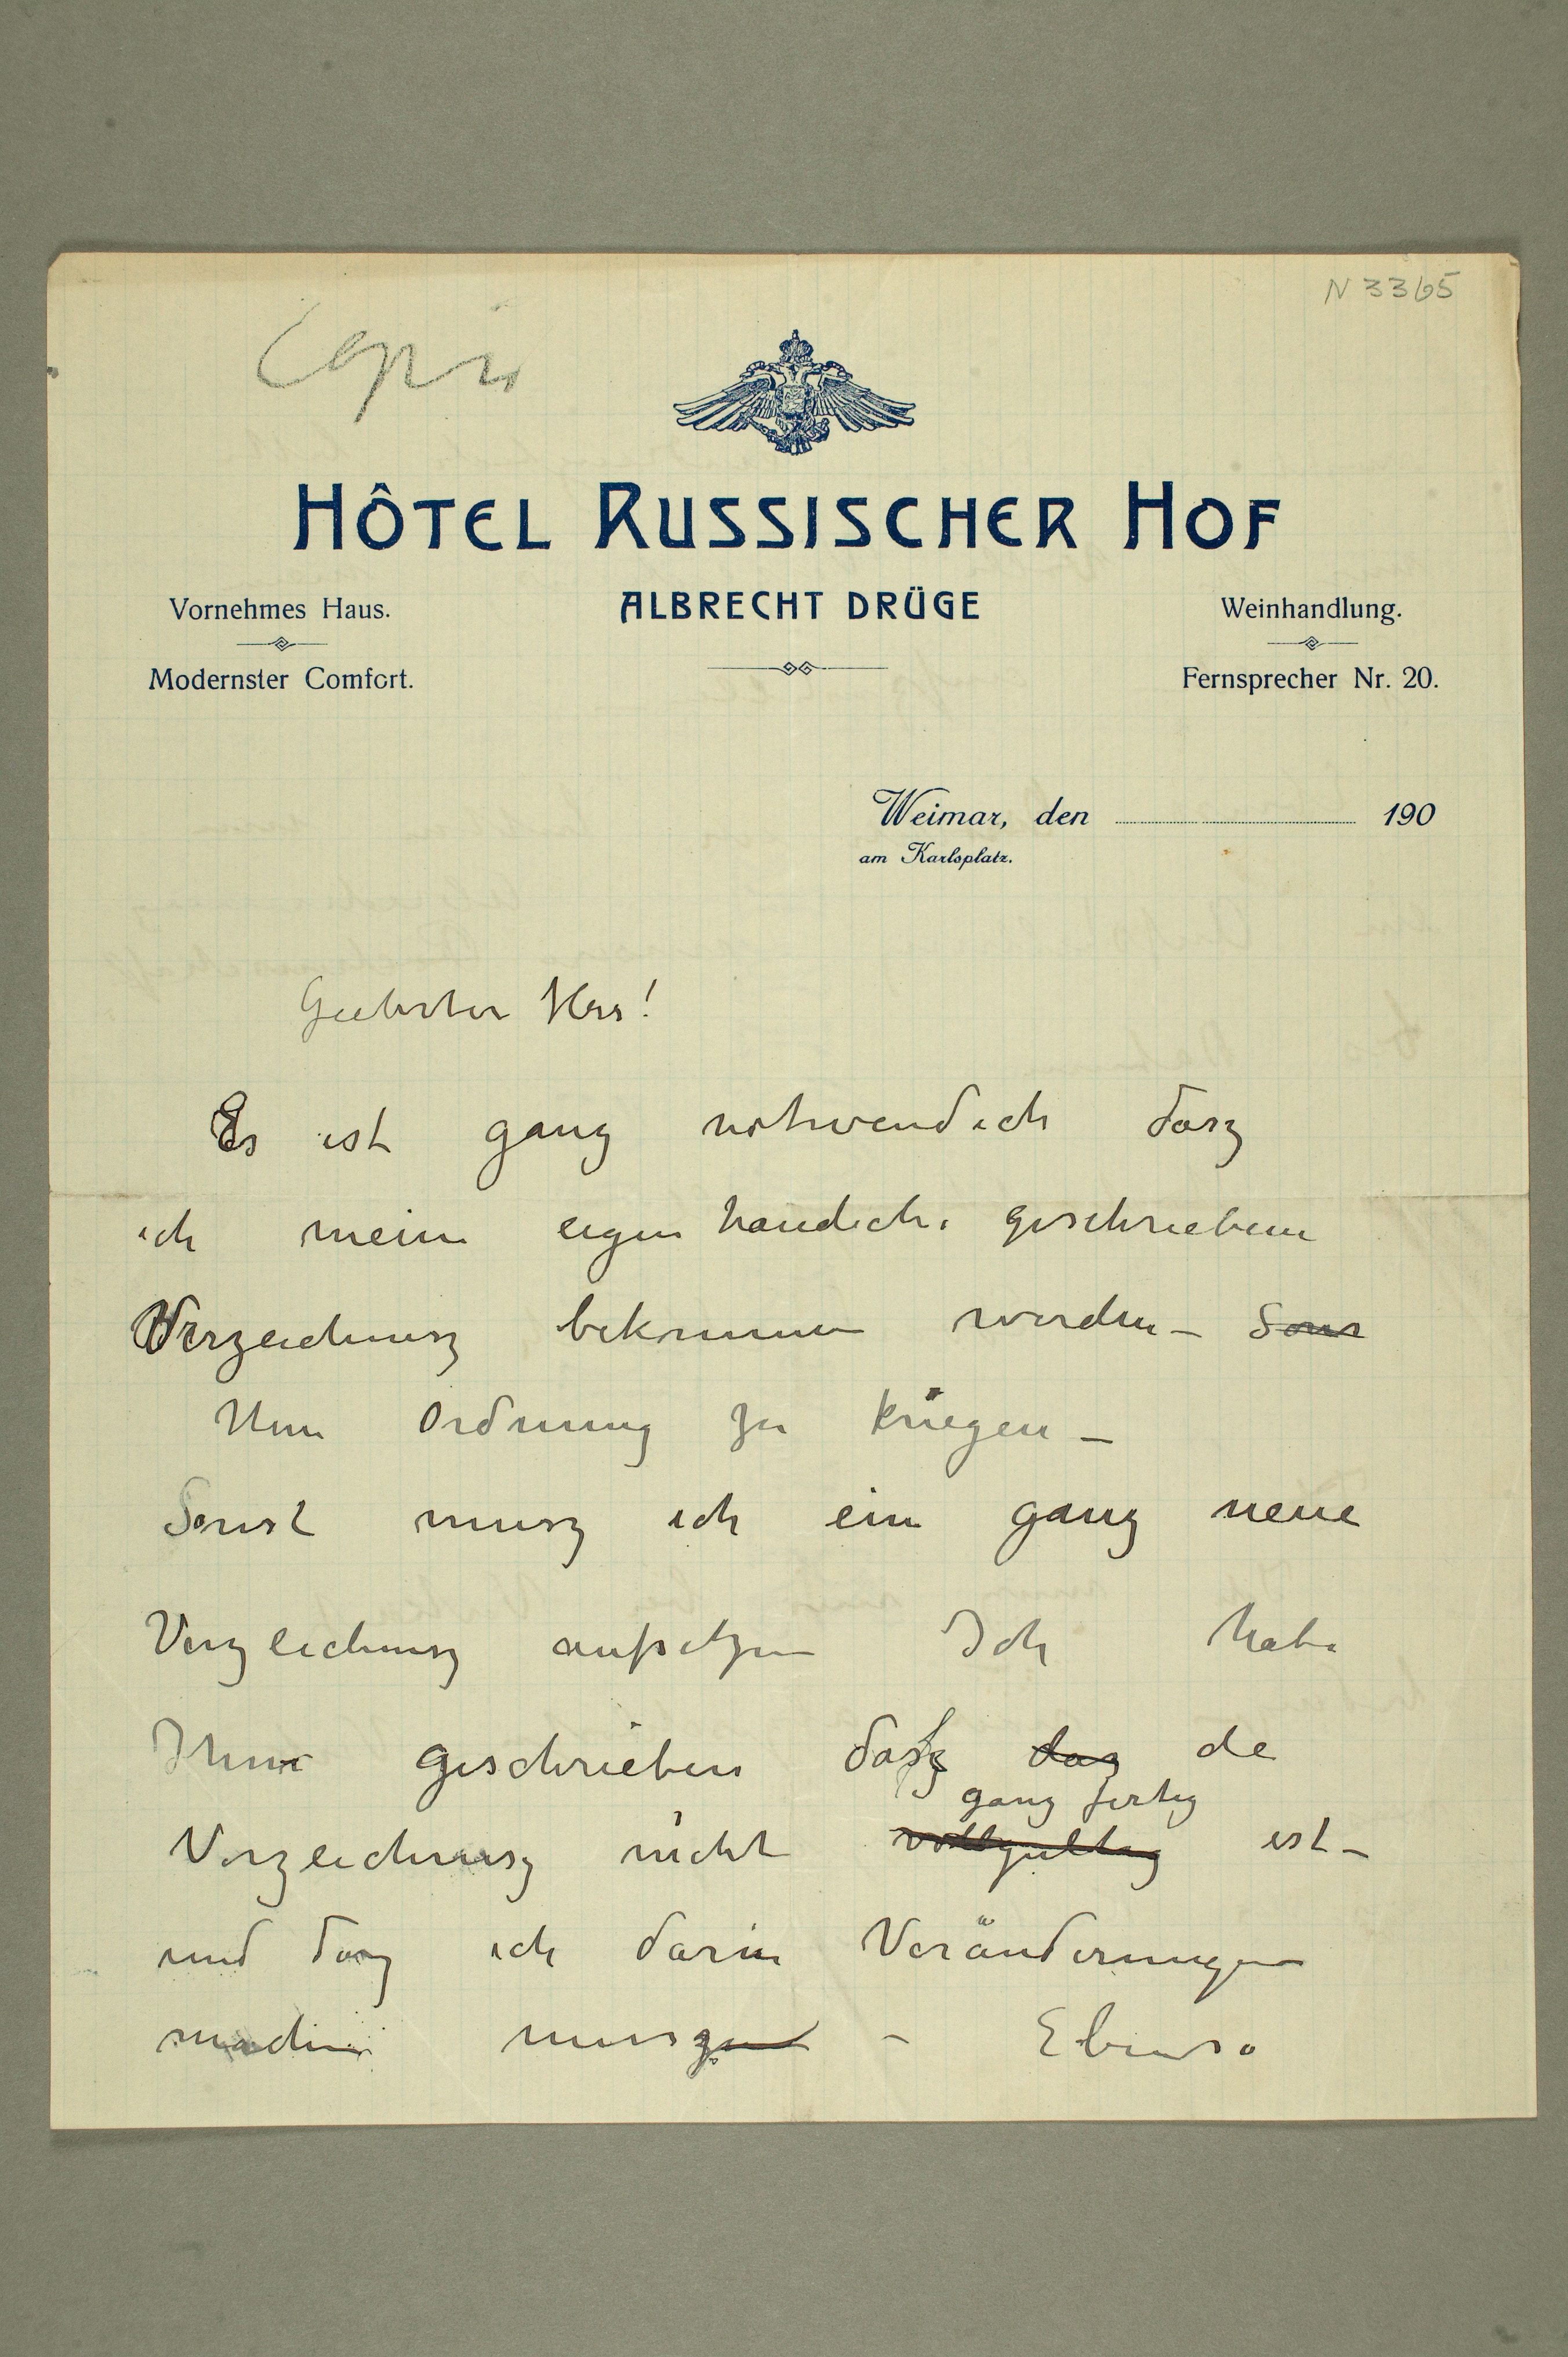 N 3365
Copie
HÔTEL RUSSISCHER HOF
Vornehmes Haus.
ALBRECHT DRÜGE
Weinhandlung.
Modernster Comfort.
Fernsprecher Nr. 20.
Weimar, den 190
am Karlsplatz.
Geehrter Herr!
Es ist ganz nothwendich dasz
ich meine eigenhandiche geschriebene
Verzeichnisz bekommen werden – Sons
Ordnung zu kriegen –
Sonst musz ich ein ganz neue
Verzeichnisz aufsetzen Ich habe
Ihnen geschrieben dasz das de
ganz fertig
Verzeichnisz nicht vollgultig ist –
und dasz ich darin Veränderungen
machen muszen – Ebenso